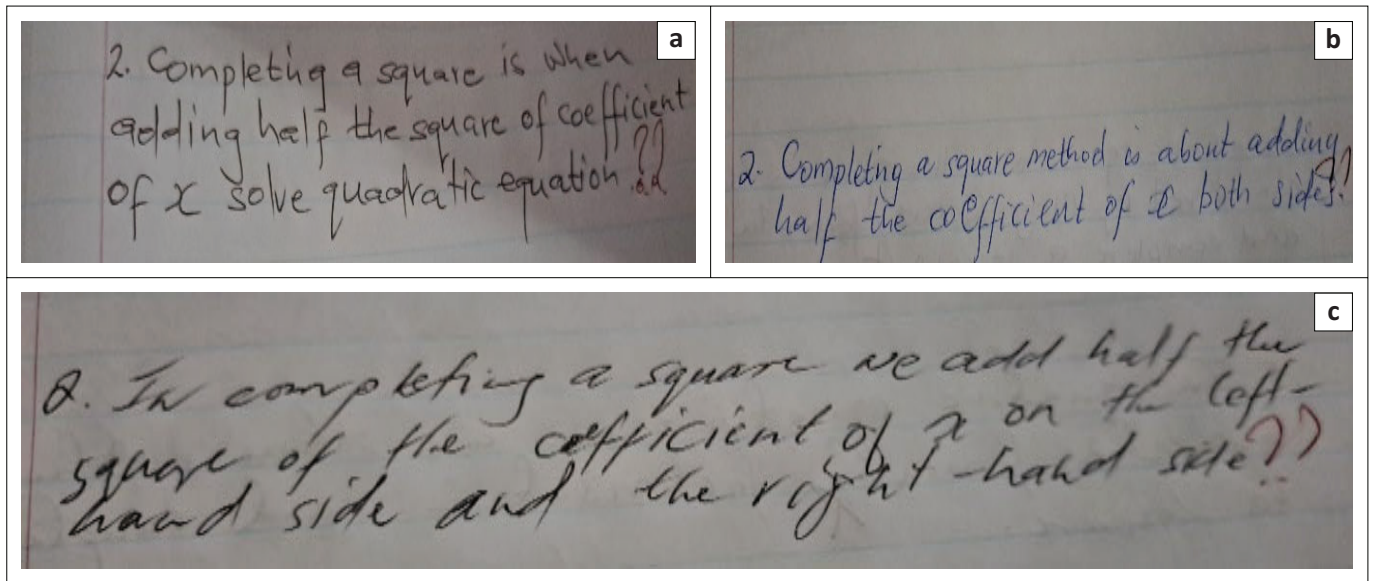 a
2. Completing a square is when
adding half the square of coefficient
of x solve quadratic equation.??
b
2. Completing a square method is about adding
half the coefficient of x both sides.??
c
2. In completing a square we add half the
square of the coefficient of x on the left-
hand side and the right-hand side??